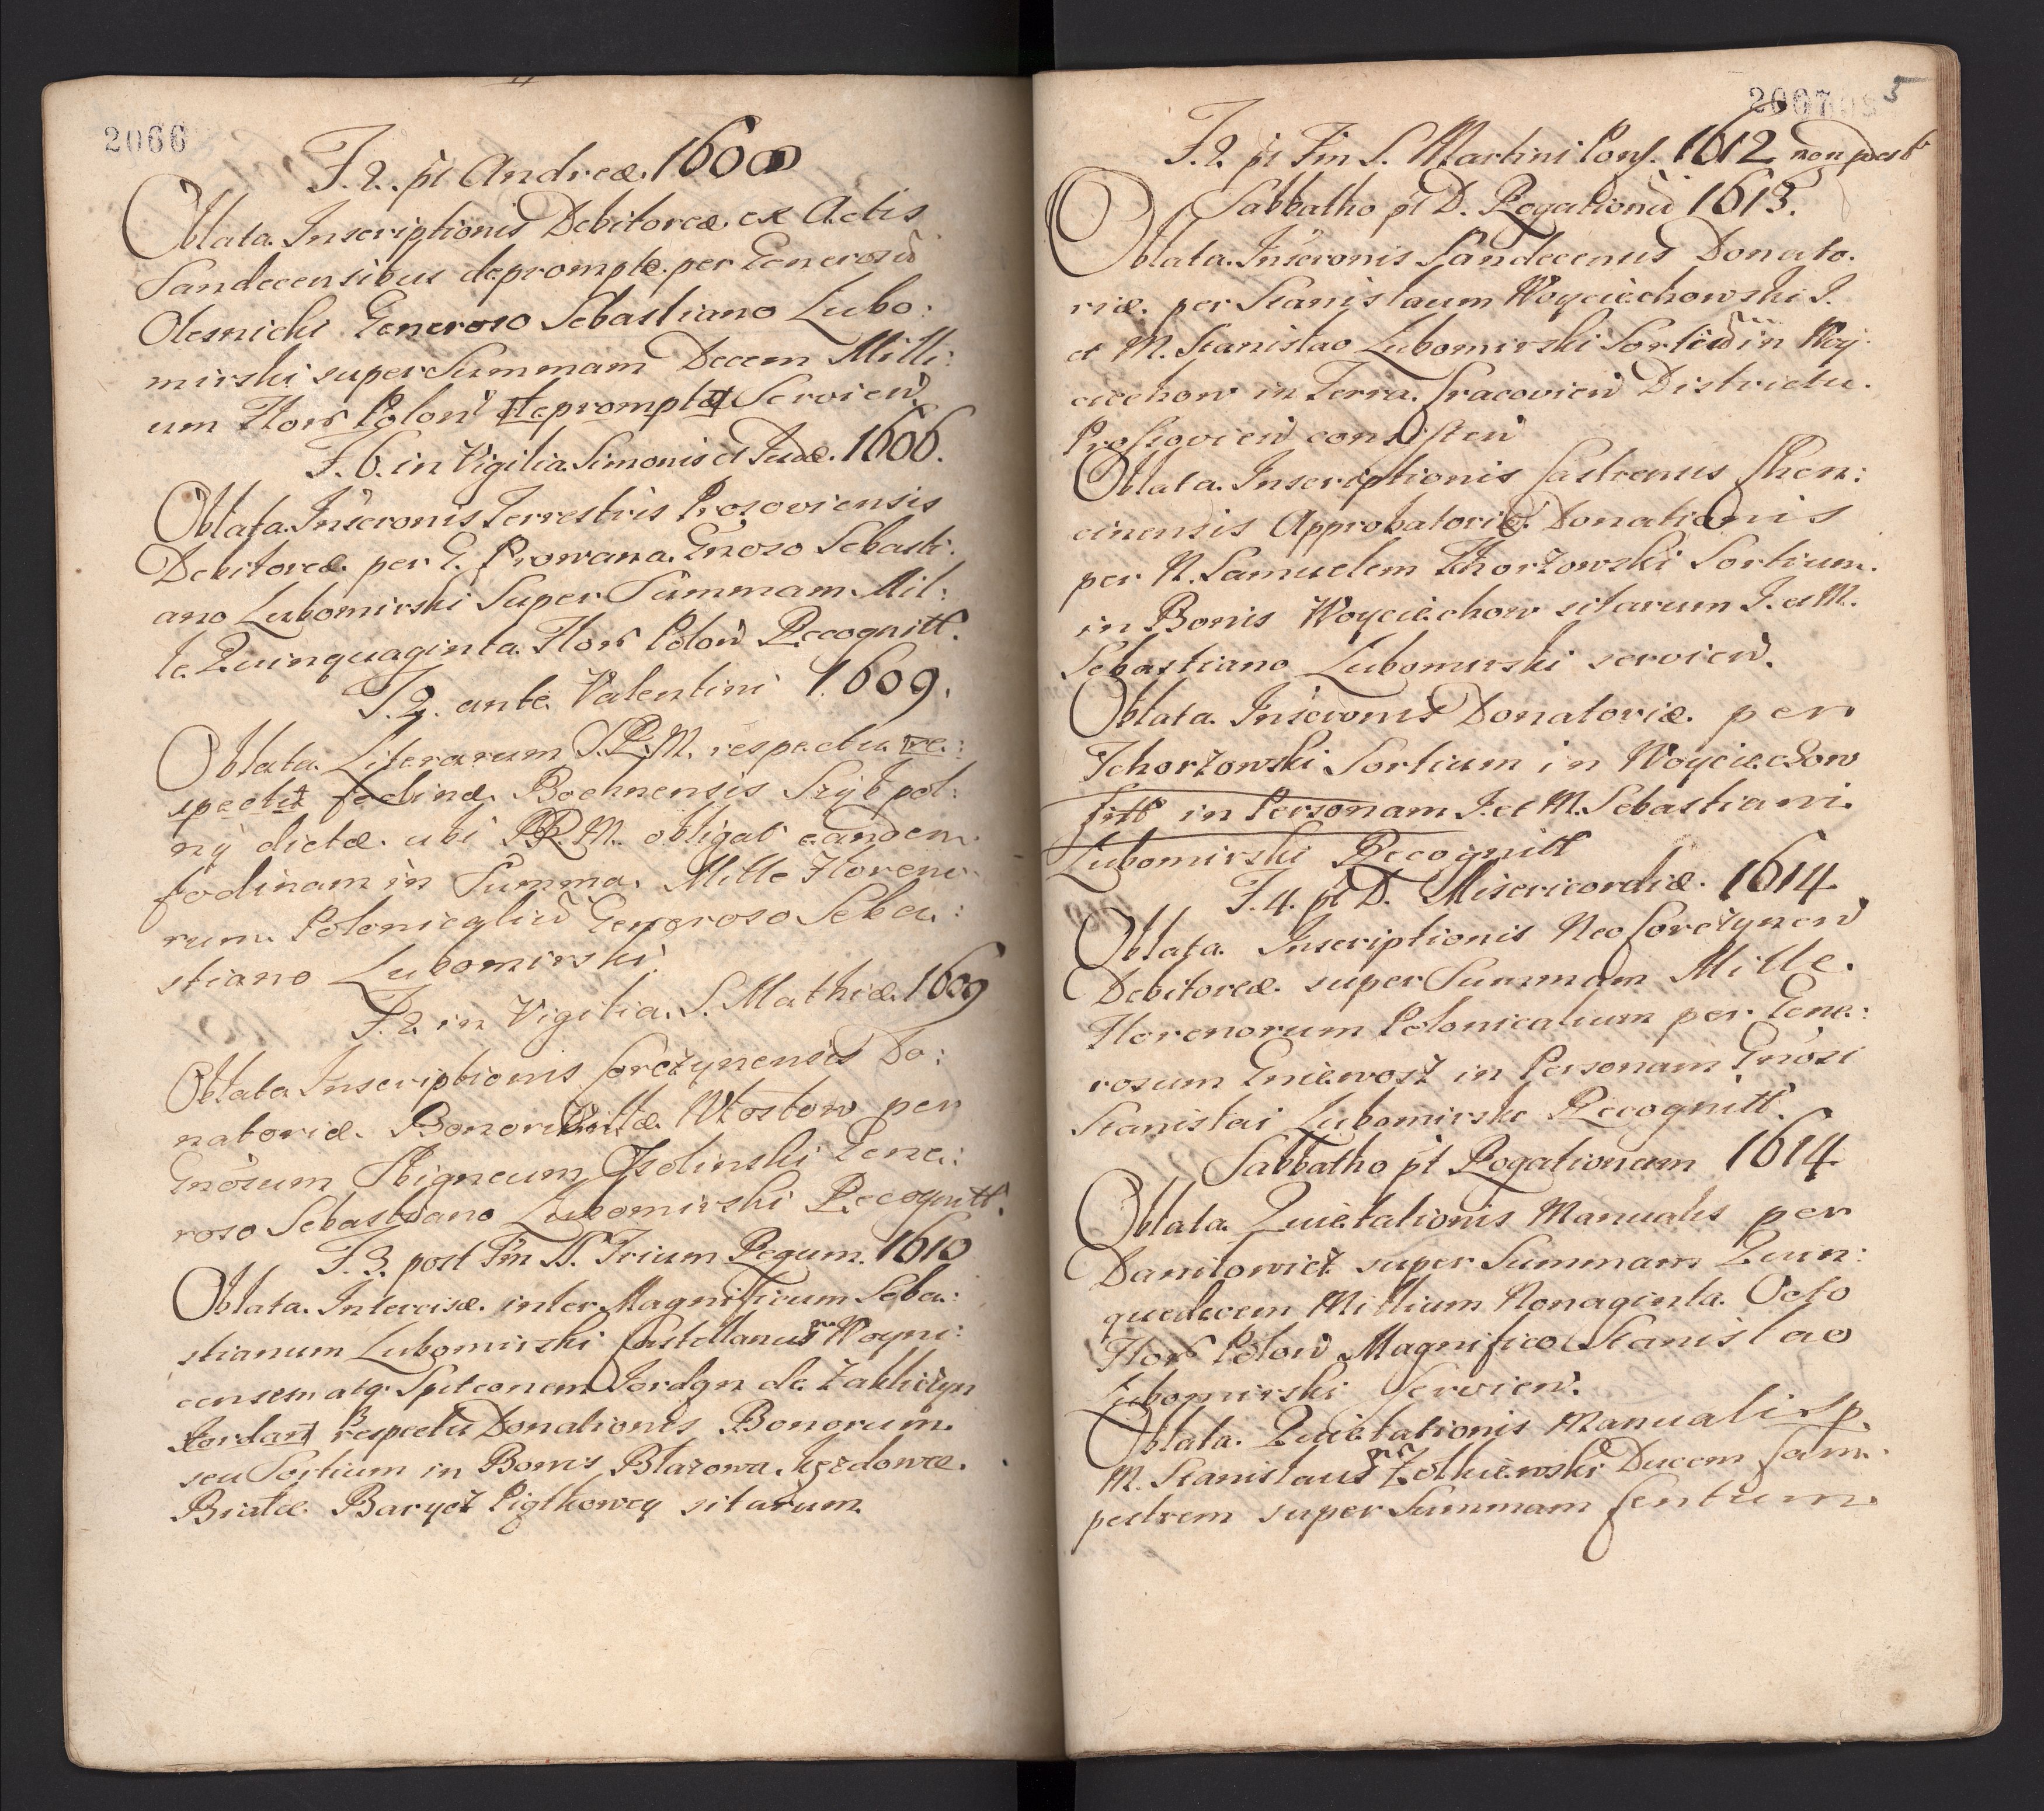 2066
F. 2. pt Andreæ. 1600
Oblata Inscriptionis Debitoreæ ex Actis
Sandecensibus depromptæ per Generosū
Olesnicki Generoso Sebastiano Lubo:
mirski super Summam Decem Milli:
um Flor Polon depromptæ Servien
F. 6. in Vigilia Simonis et Judæ. 1606.
Oblata Inscronis Terrestris Prosoviensis
Debitoreæ per G. Prowana. Gnoso Sebasti:
ano Lubomirski Super Summam Mil:
le Quinquaginta Flor Polon Recognitt.
F. 2. ante Valentini 1609.
Oblata Literarum S. R. M. respectu re:
spectu fodinæ Bochnensis Szyb pol:
ny dictæ ubi S. R. M. obligat eandem
fodinam in Summa Mille Floreno
rum Polonicaliu Generoso Seba:
stiano Lubomirski.
F. 2. in Vigilia S. Mathiæ. 1609
Oblata Inscriptionis Corczynensis Do:
natoriæ Bonor Villæ Wlostow per
Gnosum Zbigneum Ossolinski Gene:
roso Sebastiano Lubomirski Recognitt.
F. 3. post Fm SS. Trium Regum. 1610
Oblata Intercisæ inter Magnificum Seba:
stianum Lubomirski Castellanum Woyni:
censem atq. Spitconem Jordan de Zakliczyn
Jordan respectu Donationis Bonorum
seu Sortium in Bonis Blazowa
Białæ. Barycz Piątkowey sitarum
2067
5
F. 2. pt Fm S. Martini Conf. 1612 non poest
Sabbatho pt D. Rogationū 1613.
Oblata Inscronis Sandecenus Donato.
riæ. per Stanislaum Woyciechowski J.
et M. Stanislao Lubomirski Sortiū in Woy
ciechow in Terra Cracovien Districtu
Proszovien consisten
Oblata Inscriptionis Castrenus Chen:
cinensis Approbatoriæ Donationis
per N. Samuelem Thorzowski Sortium
in Bonis Woyciechow sitarum J. et M.
Sebastiano Lubomirski servien.
Oblata Inscronis Donatoriæ per
Tchorzowski Sortium in Woyciechow
sitt in Personam J. et M. Sebastiani
Lubomirski Recognitt
F. 4. pt D. Misericordiæ. 1614
Oblata Inscriptionis Neo Corczynen
Debitoreæ super Summam Mille
Florenorum Polonicalium per Gene:
rosum Gniewosz in Personam Gnosi
Stanislai Lubomirski Recognitt.
Sabbatho pt Rogationum 1614
Oblata Quietationis Manualis per
Danilowicz super Summam Quin:
quedecem Millium Nonaginta Octo
Flor Polon Magnifico Stanislao
Lubomirski Servien.
Oblata Quietationis Manualis p.
M. Stanislaum Zolkiewski Ducem Cam:
pestrem super Summam Centum